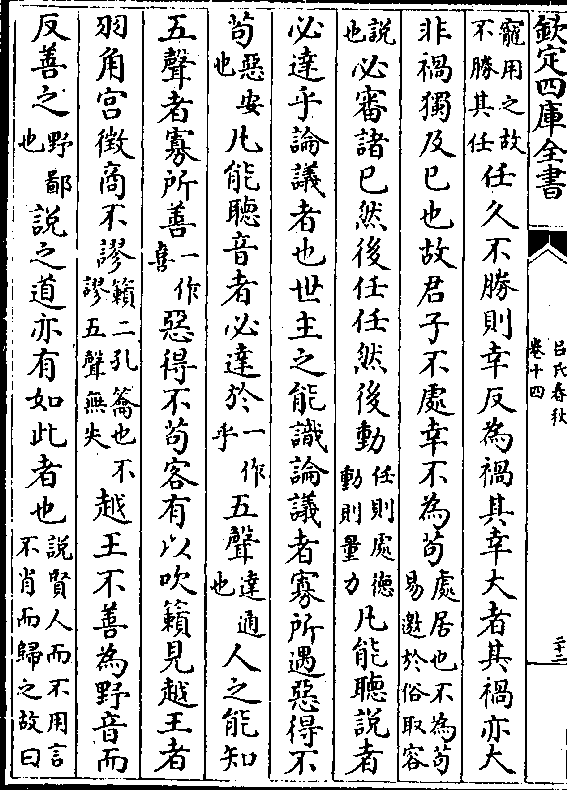 欽定四庫全書
呂氏春秋
卷十四
二十二
寵用之故不勝其任任久不勝則幸反為禍其幸大者其禍亦大
非禍獨及己也故君子不處幸不為苟處居也不為苟易邀於俗取容
說也必審諸己然後任任然後動任則處德動則量力凡能聽說者
必達乎論議者也世主之能識論議者寡所遇惡得不
苟惡安也凡能聽音者必達於一作乎五聲達通也人之能知
五聲者寡所善一作喜惡得不苟客有以吹籟見越王者
羽角宮徵商不謬籟二孔籥也不謬五聲無失越王不善為野音而
反善之野鄙也說之道亦有如此者也說賢人而不用言不肖而歸之故曰